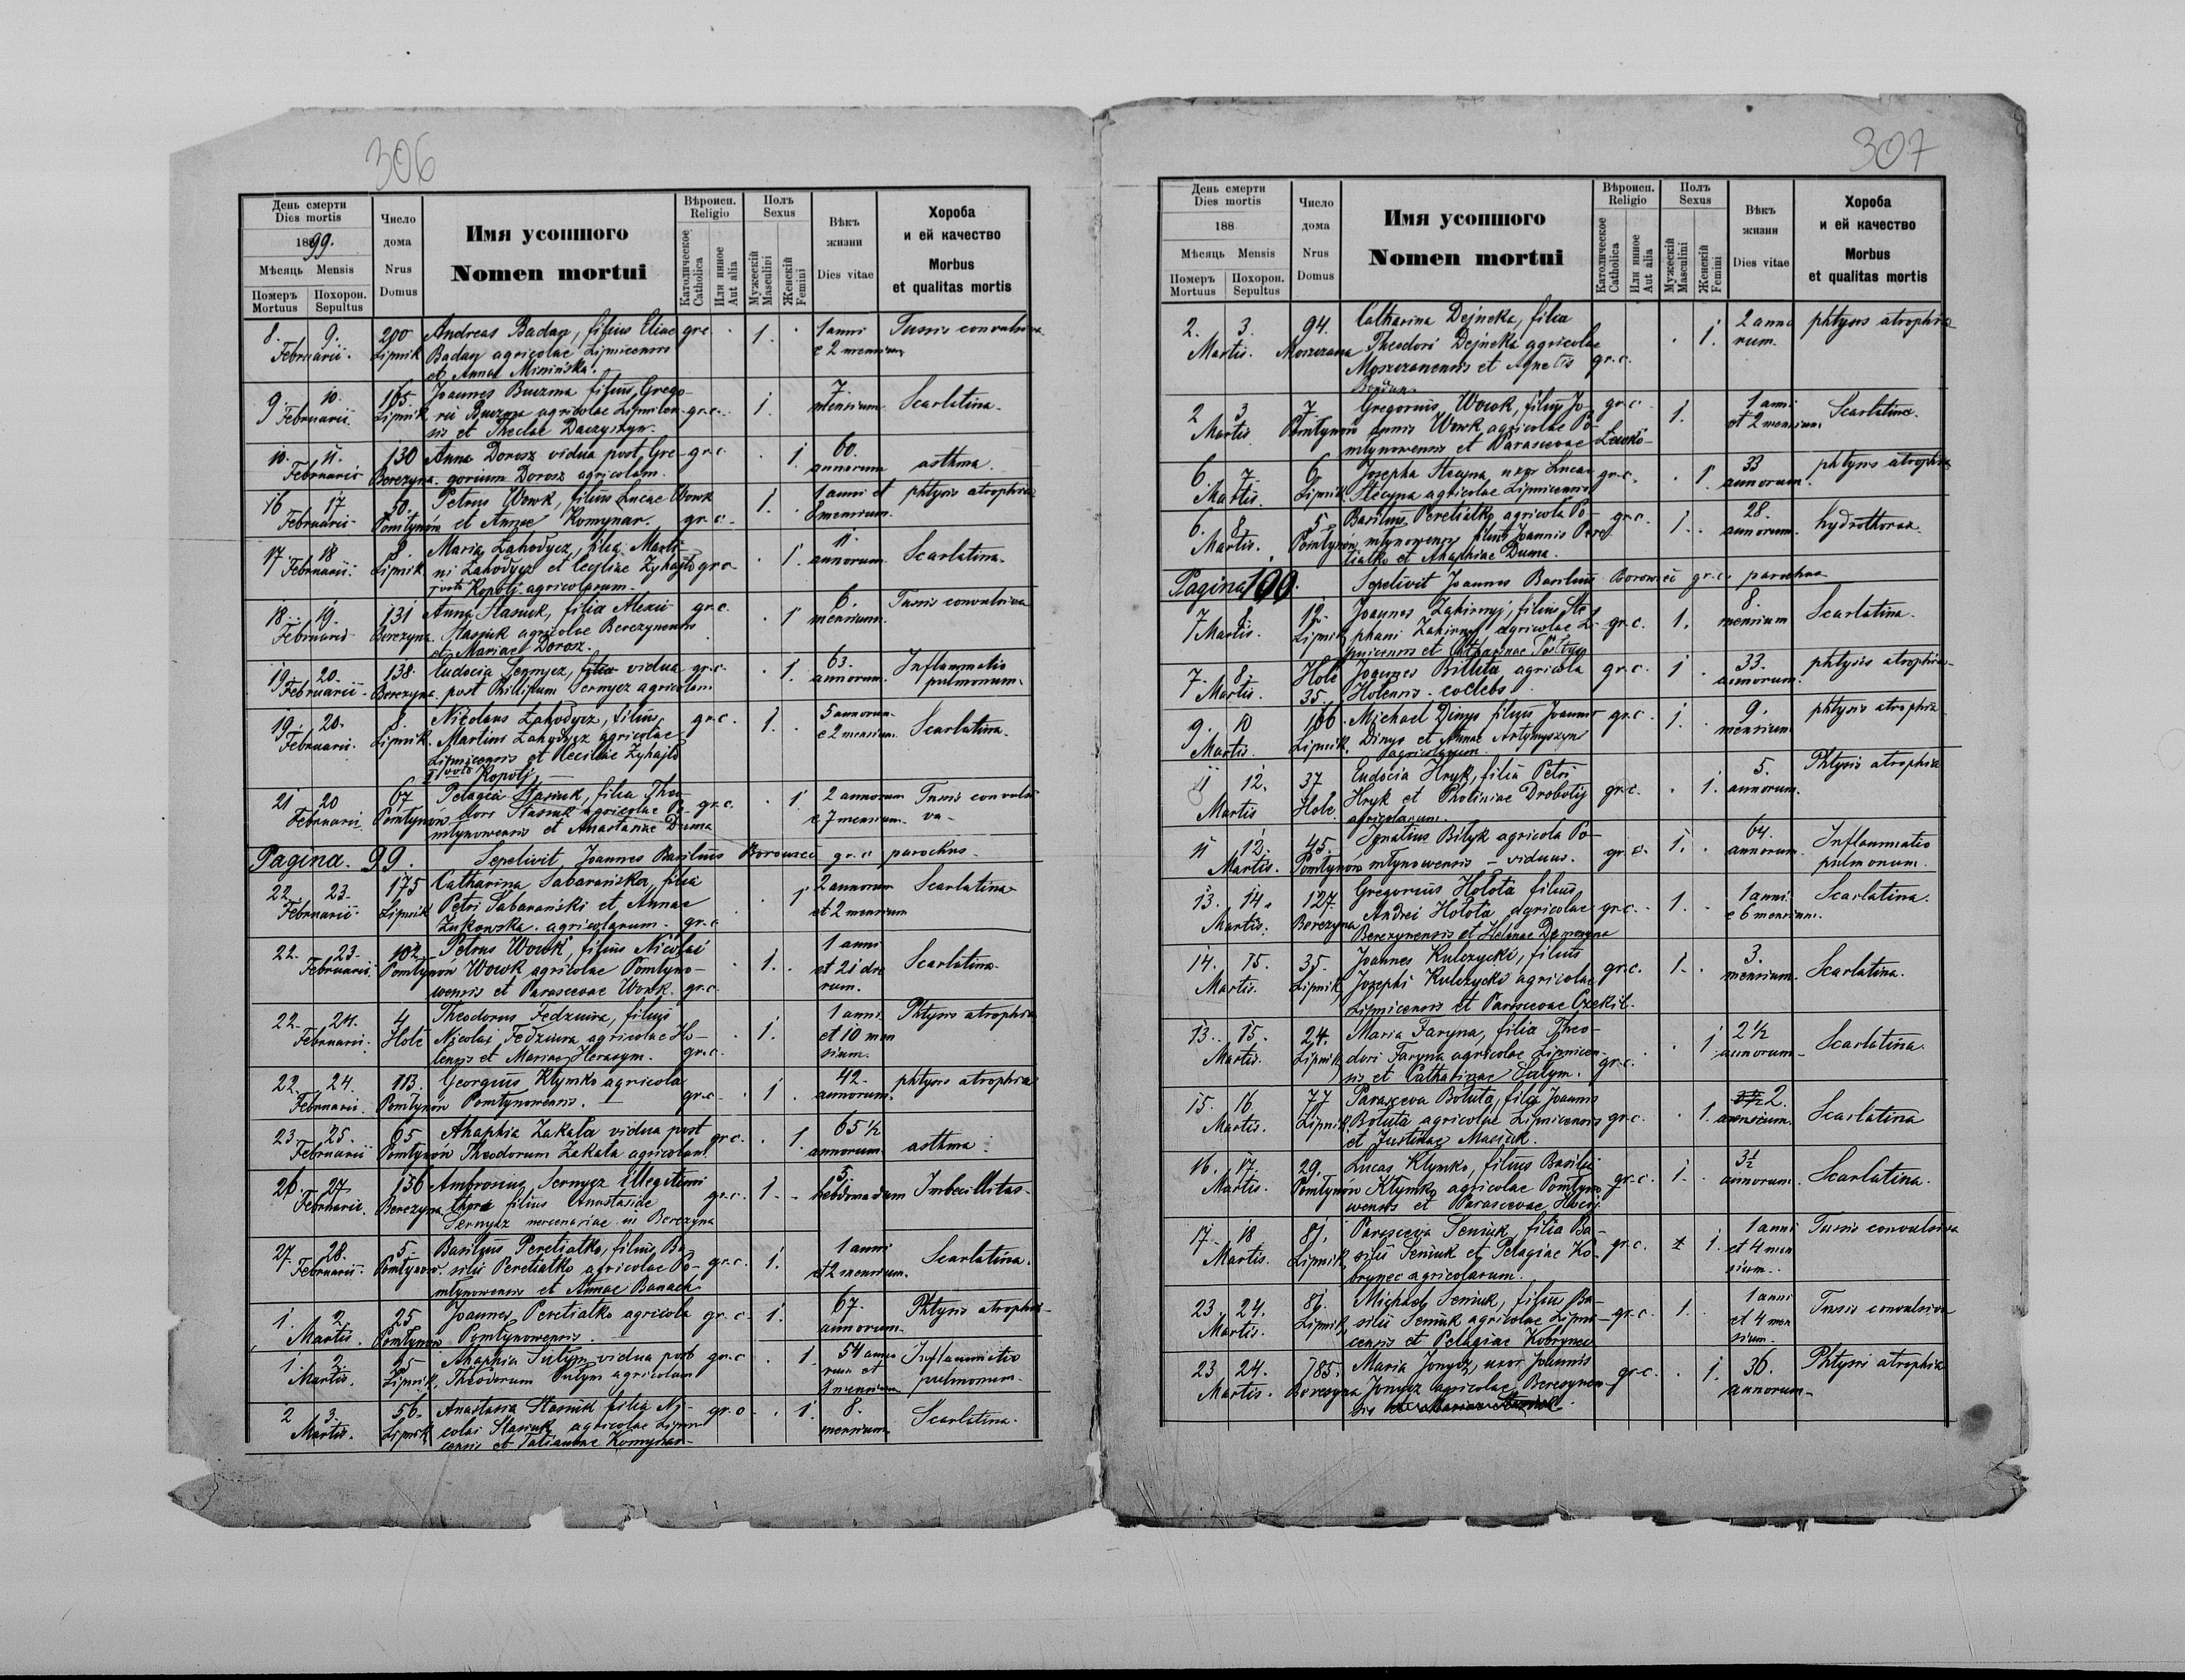 306
День смерти
Dies mortis
1899.
Мѣсяць Mensis
Померъ Похорон.
Mortuus Sepultus
Число
дома
Nrus
Domus
Имя усопшого
Nomen mortui
Вѣроисп.
Religio
Католическое
Catholica
Или инное
Aut alia
Полъ
Sexus
Мужескій
Masculini
Женскій
Femini
Вѣкъ
жизни
Dies vitae
Хороба
и ей качество
Morbus
et qualitas mortis
8. 9. 200 Andreas Baday, filius Eliae gr.c. 1. 1 anni Tussis convulsiva
Februarii. Lipnik Baday agricolae Lipnicensis e 2 mensium
et Annae Minińska.
9. 10. 165. Joannes Buczma filius Grego- 7.
Februarii. Lipnik rii Buczma agricolae Lipnicen- gr.c. 1. mensium Scarlatina.
sis et Theclae Daczyszyn.
10. 11. 130 Anna Dorosz vidua post Gre- gr.c. 1. 60.
Februarii Berezyna. gorium Dorosz agricolam. annorum asthma.
16 17 50. Petrus Wowk, filius Lucae Wowk 1. 1 anni et phtysis atrophica
Februarii Pomłynów et Annae Komynar. gr.c. 8 mensium.
17 18 8. Maria Zahodycz, filia Marti- 11.
Februarii. Lipnik. ni Zahodycz et Ceciliae Zyhajło gr.c. 1. annorum Scarlatina.
I voto Kopolj agricolarum.
18. 19. 131 Anna Stasiuk, filia Alexii gr.c. 6. Tussis convulsiva
Februarii Berezyna. Stasiuk agricolae Berezynensis 1 mensium.
et Mariae Dorosz.
19. 20. 138. Eudocia Sernycz, filia vidua gr.c. 1. 63. Inflammatio
Februarii. Berezyna. post Phillipum Sernycz agricolam annorum. pulmonum.
19. 20. 8. Nicolaus Zahodycz, filius gr.c. 1. 5 annorum
Februarii. Lipnik. Martini Zahodycz agricolae e 2 mensium. Scarlatina.
Lipnicensis et Ceciliae Zyhajło
I voto Kopolj.
21 20 67 Pelagia Stasiuk, filia Theo- gr.c. 1. 2 annorum Tussis convulsi
Februarii Pomłynów dori Stasiuk agricolae Po- e 7 mensium. va-
młynowensis et Anastasiae Duma
Pagina. 99. Sepelivit Joannes Basilius Borowiec gr.c. parochus.
22 23. 175 Catharina Sabarańska, filia 2 annorum Scarlatina
Februarii. Lipnik Petri Sabarański et Annae 1 et 2 mensium
Żukowska. agricolarum. gr.c.
22. 23. 102 Petrus Wowk, filius Nicolai 1 anni
Februarii. Pomłynów Wowk agricolae Pomłyno- 1. et 21 die Scarlatina.
wensis et Parascevae Wowk. gr.c. rum.
22. 24. 4 Theodorus Fedziura, filius 1 anni Phtysis atrophica
Februarii. Hole Nicolai Fedziura agricolae Ho- 1. et 10 men
lensis et Mariae Herasym. gr.c. sium.
22. 24. 113. Georgius Klymko agricola 42. phtysis atrophica
Februarii. Pomłynów Pomłynowensis. gr.c. 1. annorum.
23. 25. 65 Ahaphia Zakala vidua post gr.c. 1. 65 ½
Februarii Pomłynów Theodorum Zakala agricolam annorum. asthma.
26 27 156 Ambrosius Sernycz illegitimi 5.
Februarii. Berezyna thori filius Anastasiae gr.c. 1. hebdomadum Imbecillitas.
Sernycz mercenariae in Berezyna
27. 28. 5. Basilius Peretiatko, filius Ba- 1 anni
Februarii. Pomłynów. silii Peretiatko agricolae Po- gr.c. 1. et 2 mensium. Scarlatina.
młynowensis et Annae Banach
1. 2. 25 Joannes Peretiatko agricola gr.c. 1. 67. Phtysis atrophica
Martis. Pomłynów Pomłynowensis. annorum.
1. 2. 25 Ahaphia Sutym vidua post gr.c. 1. 54 anno Inflammatio
Martis. Lipnik. Theodorum Sutym agricolam rum et pulmonum.
mensium
2 3. 56. Anastasia Stasiuk filia Ni- gr.c. 1. 8.
Martis. Lipnik colai Stasiuk agricolae Lipni- mensium Scarlatina.
censis et Tatiannae Komynar.
307
День смерти
Dies mortis
188
Мѣсяць Mensis
Померъ Похорон.
Mortuus Sepultus
Число
дома
Nrus
Domus
Имя усопшого
Nomen mortui
Вѣроисп.
Religio
Католическое
Catholica
Или инное
Aut alia
Полъ
Sexus
Мужескій
Masculini
Женскій
Femini
Вѣкъ
жизни
Dies vitae
Хороба
и ей качество
Morbus
et qualitas mortis
2. 3. 94. Catharina Dejneka, filia 2 anno phtysis atrophica
Martis. Moszczana Theodori Dejneka agricolae 1. rum.
Moszczanensis et Agnetis gr.c.
Bondar.
2 3 7 Gregorius Wowk, filius Jo- gr.c. 1. 1 anni
Martis. Pomłynów annis Wowk agricolae Po- et 2 mensium. Scarlatina.
młynowensis et Parascevae
6. 7. 6 Josepha Stecyna uxor Lucae gr.c. 1. 33 phtysis atrophica
Martis. Lipnik. Stecyna agricolae Lipnicensis annorum.
6. 8. 5. Basilius Peretiatko agricola Po- gr.c. 1. 28.
Martis. Pomłynów młynowensis filius Joannis Pere- annorum. hydrothorax.
tiatko et Ahaphiae Duma.
Pagina 100. Sepelivit Joannes Basilius Borowiec gr.c. parochus
7 8. 12. Joannes Zakirnyj, filius Ste- 8.
Martis. Lipnik phani Zakirnyj agricolae Li- gr.c. 1. mensium Scarlatina.
pnicensis et
7. 8. Hole Joannes Billita agricola gr.c. 1 33. phtysis atrophica
Martis. 35. Holensis. coelebs. annorum.
9. 10 166. Michael Dinys filius Joannis gr.c. 1. 9. phtysis atrophica
Martis. Lipnik. Dinys et Annae Artymyszyn mensium
agricolarum.
11 12. 37 Eudocia Hryk, filia Petri 5. Phtysis atrophica
Martis Hole. Hryk et Photiniae Drobotij gr.c. 1. annorum.
agricolarum.
11 12. 45. Ignatius Bilyk agricola Po- 64. Inflammatio
Martis. Pomłynów młynowensis - viduus. gr.c. 1. annorum. pulmonum.
13. 14. 127. Gregorius Hołota filius 1 anni Scarlatina.
Martis. Berezyna Andrei Hołota agricolae gr.c. 1. e 6 mensium.
Berezynensis et Helenae
14. 15. 35. Joannes Kulczycki, filius 3.
Martis. Lipnik. Josephi Kulczycki agricolae gr.c. 1. mensium. Scarlatina.
Lipnicensis et Parascevae
13. 15. 24. Maria Faryna, filia Theo- 2 ½
Martis. Lipnik dori Faryna agricolae Lipnicen- gr.c. 1 annorum. Scarlatina.
sis et Catharinae Sutym.
15. 16 77 Parasceva Boluta, filia Joannis 2.
Martis. Lipnik Boluta agricolae Lipnicensis gr.c. 1. Scarlatina
et Justinae Masiuk.
16. 17. 29. Lucas Klymko, filius Basilii 3½
Martis. Pomłynów Klymko agricolae Pomłyno- gr.c. 1. annorum. Scarlatina.
wensis et Parascevae
17. 18 81. Parasceva Seniuk, filia Ba- 1 anni Tussis convulsiva
Martis. Lipnik silii Seniuk et Pelagiae Ko- gr.c. 1. et 4 men
brynec agricolarum. sium.
23. 24. 81. Michael Seniuk, filius Ba- 1 anni
Martis. Lipnik silii Seniuk agricolae Lipni- gr.c. 1. et 4 men Tussis convulsiva
censis et Pelagiae Kobrynec sium.
23 24. 185. Maria Jonycz, uxor Joannis gr.c. 1. 36. Phtysis atrophica
Martis. Berezyna Jonycz agricolae Berezynen- annorum.
sis